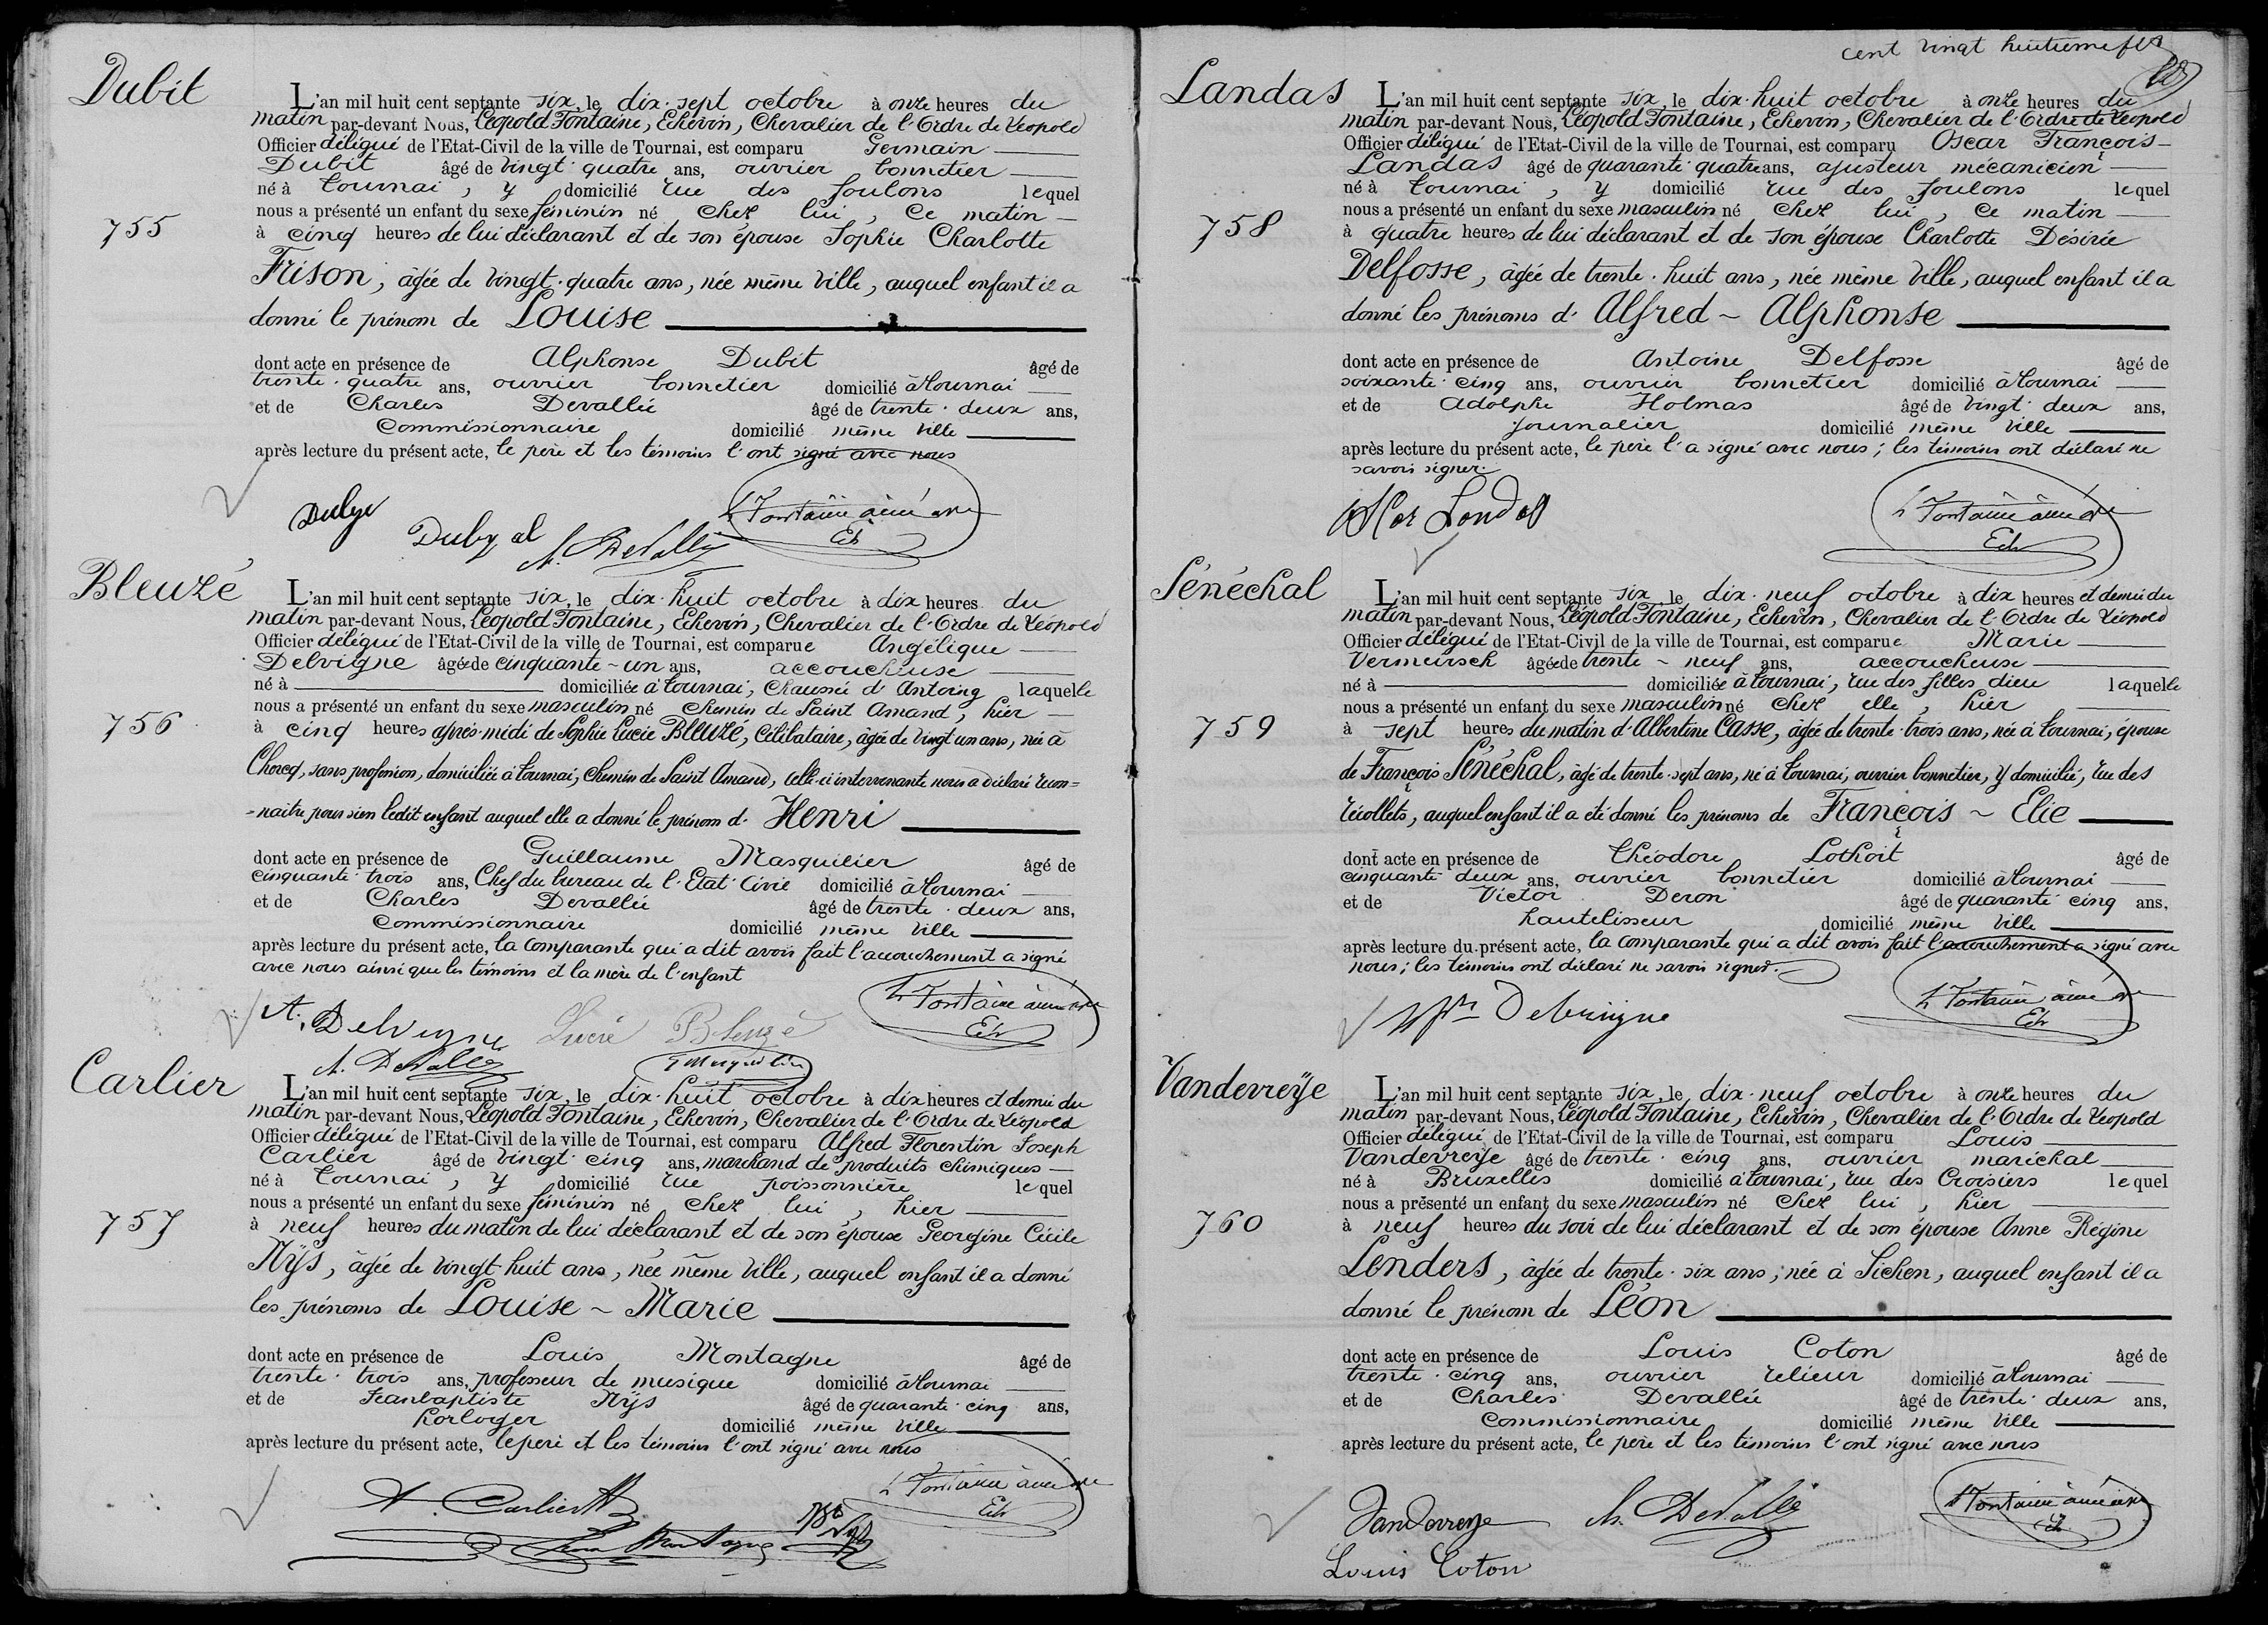 Dubit
L'an mil huit cent septante six, le dix-sept octobre à onze heures du
matin par-devant Nous, Léopold Fontaine, Echevin, Chevalier de l'Ordre de Léopold
Officier délégué de l'Etat-Civil de la ville de Tournai, est comparu Germain
Dubit âgé de vingt-quatre ans, ouvrier bonnetier
né à Tournai, y domicilié rue des foulons lequel
nous a présenté un enfant du sexe féminin né chez lui, ce matin
755
à cinq heures de lui déclarant et de son épouse Sophie Charlotte
Frison, âgée de vingt-quatre ans, née même ville, auquel enfant il a
donné le prénom de Louise
dont acte en présence de Alphonse Dubit âgé de
trente-quatre ans, ouvrier bonnetier domicilié à Tournai
et de Charles Devallée âgé de trente-deux ans,
Commissionnaire domicilié même ville
après lecture du présent acte, le père et les témoins l'ont signé avec nous
L Fontaine ainé
Ech
Bleuzé
L'an mil huit cent septante six, le dix-huit octobre à dix heures du
matin par-devant Nous, Léopold Fontaine, Echevin, Chevalier de l'Ordre de Léopold
Officier délégué de l'Etat-Civil de la ville de Tournai, est comparue Angélique
Delvigne âgée de cinquante-un ans, accoucheuse
né à domiciliée à Tournai, Chaussée d'Antoing laquelle
nous a présenté un enfant du sexe masculin né Chemin de Saint Amand, hier
756
à cinq heures après-midi de Sophie Lucie Bleuzé, célibataire, âgée de vingt un ans, née à
Chercq, sans profession, domiciliée à Tournai, Chemin de Saint Amand, celle-ci intervenante nous a déclaré recon=
=naitre pour sien ledit enfant auquel elle a donné le prénom d'Henri
dont acte en présence de Guillaume Masquilier âgé de
cinquante-trois ans, Chef du bureau de l'Etat-Civil domicilié à Tournai
et de Charles Devallée âgé de trente-deux ans,
Commissionnaire domicilié même ville
après lecture du présent acte, la comparante qui a dit avoir fait l'accouchement a signé
avec nous ainsi que les témoins et la mère de l'enfant
A. Delvigne Lucie Bleuzé L Fontaine ainé
Ech
Carlier
L'an mil huit cent septante six, le dix-huit octobre à dix heures et demie du
matin par-devant Nous, Léopold Fontaine, Echevin, Chevalier de l'Ordre de Léopold
Officier délégué de l'Etat-Civil de la ville de Tournai, est comparu Alfred Florentin Joseph
Carlier âgé de vingt-cinq ans, marchand de produits chimiques
né à Tournai, y domicilié rue poissonnière lequel
nous a présenté un enfant du sexe féminin né chez lui, hier
757
à neuf heures du matin de lui déclarant et de son épouse Georgine Cécile
Nÿs, âgée de vingt-huit ans, née même ville, auquel enfant il a donné
les prénoms de Louise ~ Marie
dont acte en présence de Louis Montagne âgé de
trente-trois ans, professeur de musique domicilié à Tournai
et de Jeanbaptiste Nÿs âgé de quarante-cinq ans,
horloger domicilié même ville
après lecture du présent acte, le père et les témoins l'ont signé avec nous
A. Carlier L Fontaine ainé
Ech
cent vingt huitième
Landas
L'an mil huit cent septante six, le dix-huit octobre à onze heures du
matin par-devant Nous, Léopold Fontaine, Echevin, Chevalier de l'Ordre de Léopold
Officier délégué de l'Etat-Civil de la ville de Tournai, est comparu Oscar François
Landas âgé de quarante-quatre ans, ajusteur mécanicien
né à Tournai, y domicilié rue des foulons lequel
nous a présenté un enfant du sexe masculin né chez lui, ce matin
758
à quatre heures de lui déclarant et de son épouse Charlotte Désirée
Delfosse, âgée de trente-huit ans, née même ville, auquel enfant il a
donné les prénoms d'Alfred ~ Alphonse
dont acte en présence de Antoine Delfosse âgé de
soixante-cinq ans, ouvrier bonnetier domicilié à Tournai
et de Adolphe Holmas âgé de vingt-deux ans,
journalier domicilié même ville
après lecture du présent acte, le père l'a signé avec nous; les témoins ont déclaré ne
savoir signer.
L Fontaine ainé
Ech
Sénéchal
L'an mil huit cent septante six, le dix-neuf octobre à dix heures et demie du
matin par-devant Nous, Léopold Fontaine, Echevin, Chevalier de l'Ordre de Léopold
Officier délégué de l'Etat-Civil de la ville de Tournai, est comparue Marie
Vermeirsch âgée de trente-neuf ans, accoucheuse
né à domiciliée à Tournai, rue des filles dieu laquelle
nous a présenté un enfant du sexe masculin né chez elle, hier
759
à sept heures du matin d'Albertine Casse, âgée de trente-trois ans, née à Tournai, épouse
de François Sénéchal, âgé de trente-sept ans, né à Tournai, ouvrier bonnetier, y domicilié, rue des
récollets, auquel enfant il a été donné les prénoms de François ~ Elie
dont acte en présence de Théodore Lothoit âgé de
cinquante-deux ans, ouvrier bonnetier domicilié à Tournai
et de Victor Deron âgé de quarante-cinq ans,
hautelisseur domicilié même ville
après lecture du présent acte, la comparante qui a dit avoir fait l'accouchement a signé avec
nous; les témoins ont déclaré ne savoir signer.
L Fontaine ainé
Ech
Vandevreÿe
L'an mil huit cent septante six, le dix-neuf octobre à onze heures du
matin par-devant Nous, Léopold Fontaine, Echevin, Chevalier de l'Ordre de Léopold
Officier délégué de l'Etat-Civil de la ville de Tournai, est comparu Louis
Vandevreÿe âgé de trente-cinq ans, ouvrier maréchal
né à Bruxelles domicilié à Tournai, rue des Croisiers lequel
nous a présenté un enfant du sexe masculin né chez lui, hier
760
à neuf heures du soir de lui déclarant et de son épouse Anne Régine
Lenders, âgée de trente-six ans, née à Sichen, auquel enfant il a
donné le prénom de Léon
dont acte en présence de Louis Coton âgé de
trente-cinq ans, ouvrier relieur domicilié à Tournai
et de Charles Devallée âgé de trente-deux ans,
Commissionnaire domicilié même ville
après lecture du présent acte, le père et les témoins l'ont signé avec nous
Vandevreye Ch. Devallée L Fontaine ainé
Louis Coton